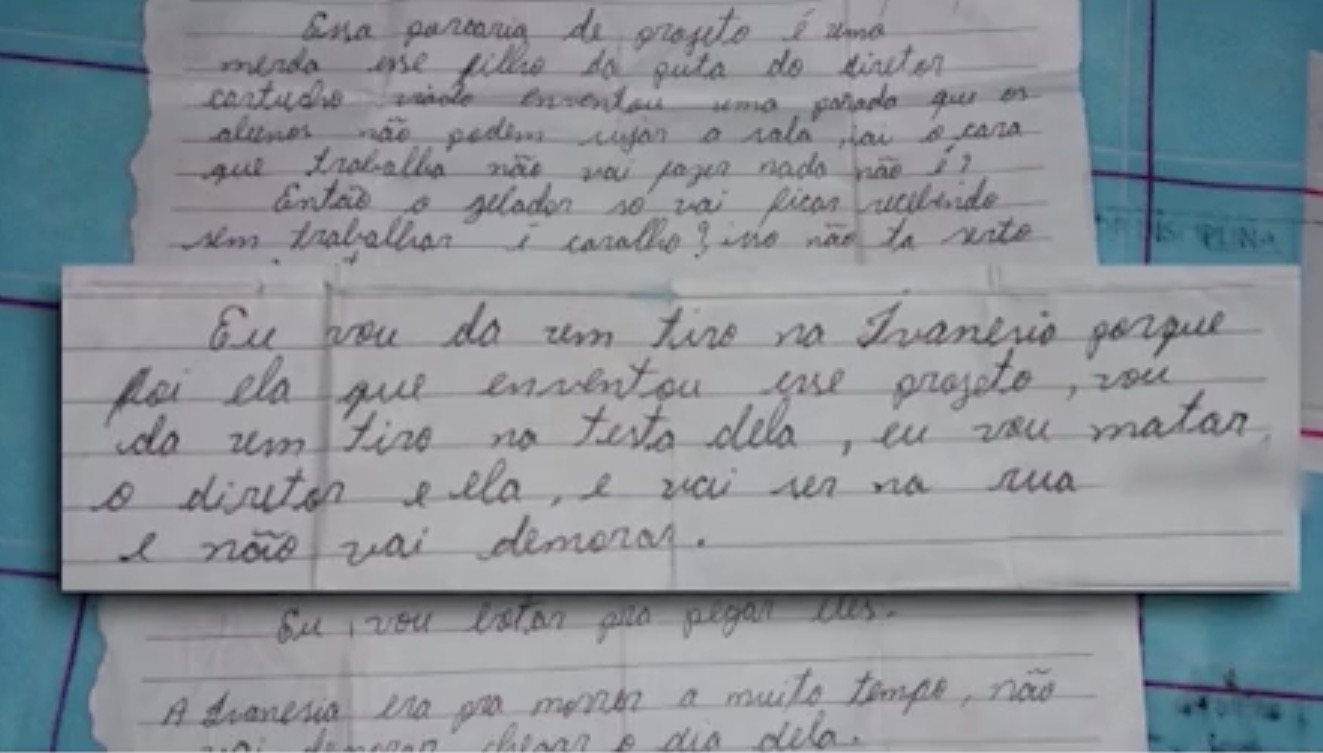 Essa parcaria de progeto é uma
merda esse filho da puta do diretor
viado enventou uma parada que os
alunos não podem sujar a sala, iai o cara
que trabalha não vai fazer nada não é?
Então o zelador so vai ficar recebendo
sem trabalhar é caralho? isso não ta serto
Eu vou da um tiro na Ivanesia porque
foi ela que enventou esse progeto, vou
da um tiro na testa dela, eu vou matar
o diretor e ela, e vai ser na rua
e não vai demorar.
Eu, vou botar pra pegar eles.
A Ivanesia era pra morrer a muito tempo, não
vai demorar chegar o dia dela.